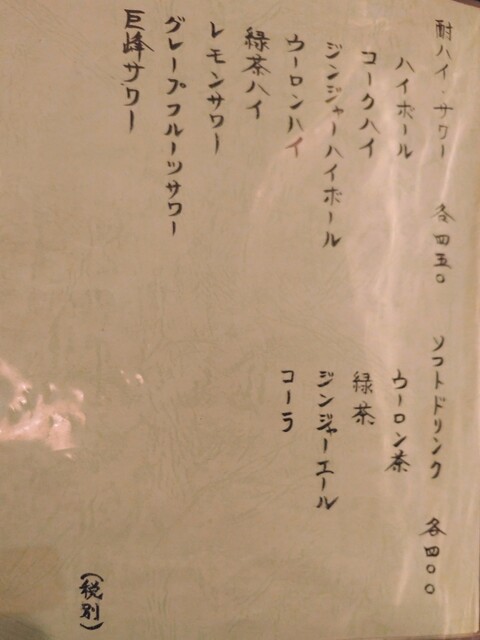 酎ハイ・サワー 各四五〇
ハイボール
コークハイ
ジンジャーハイボール
ウーロンハイ
緑茶ハイ
レモンサワー
グレープフルーツサワー
巨峰サワー
ソフトドリンク 各四〇〇
ウーロン茶
緑茶
ジンジャーエール
コーラ
(税別)